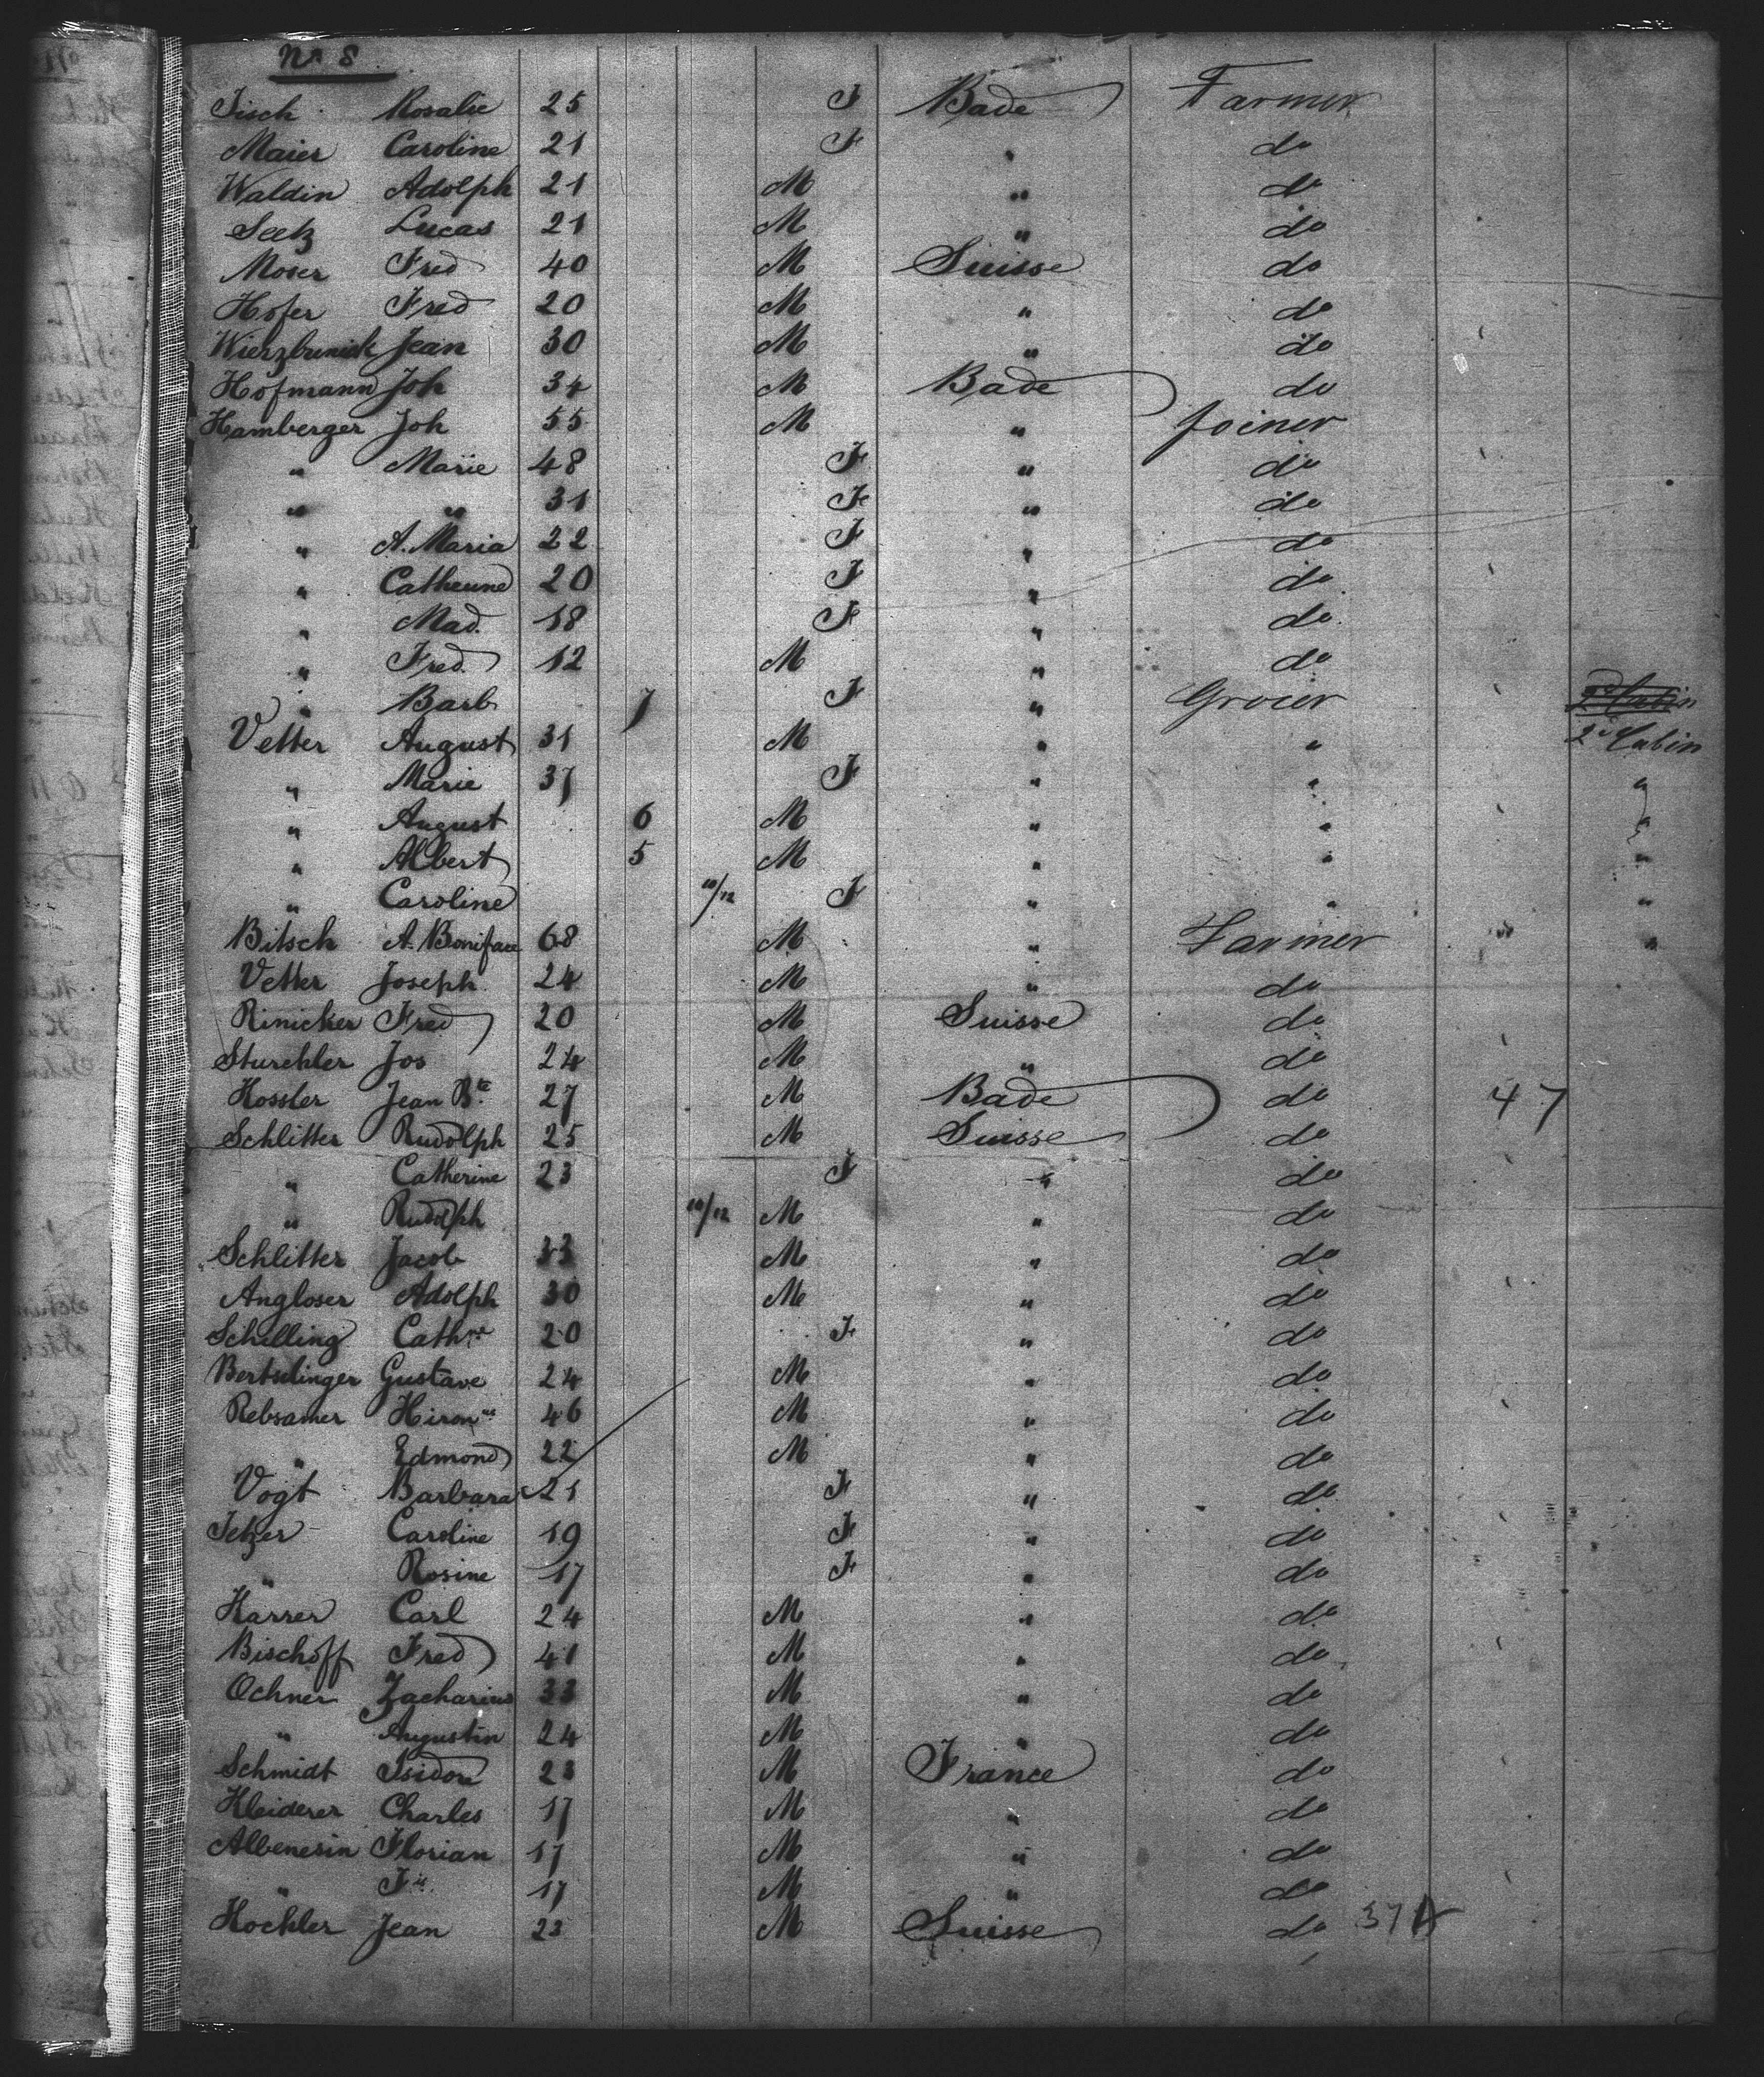 No 8
Fisch Rosalie 25 F Bade Farmer
Maier Caroline 21 F " do
Waldin Adolph 21 M " do
Seetz Lucas 21 M " do
Moser Fred 40 M Suisse do
Hofer Fred 20 M " do
Jean 30 M " do
Hofmann Joh 34 M Bade do
Hamberger Joh 55 M " Joiner
" Marie 48 F " do
" " 31 F " do
" A. Maria 22 F " do
" Catherine 20 F " do
" Mad. 18 F " do
" Fred. 12 M " do
" Barb 7 F " Grocer
Vetter August 31 M " " 2d Cabin
" Marie 37 F " " "
" August 6 M " " "
" Albert 5 M " " "
" Caroline 10/12 F " " "
Bitsch A. Boniface 68 M " Farmer " "
Vetter Joseph 24 M " do
Rinicker Fred 20 M Suisse do
Sturchler Jos 24 M " do
Hossler Jean Bte 27 M Bade do 47
Schlitter Rudolph 25 M Suisse do
" Catherine 23 F " do
" Rudolph 10/12 M " do
Schlitter Jacob 33 M " do
Angloser Adolph 30 M " do
Schilling Cathne 20 F " do
Bertschinger Gustave 24 M " do
Rebsamer Hironus 46 M " do
" Edmond 22 M " do
Vogt Barbara 21 F " do
Jetzer Caroline 19 F " do
" Rosine 17 F " do
Harrer Carl 24 M " do
Bischoff Fred 41 M " do
Ochner Zacharius 33 M " do
" Augustin 24 M " do
Schmidt Isidore 23 M France do
Kleiderer Charles 17 M " do
Albenesin Florian 17 M " do
" 17 M " do
Hochler Jean 23 M Suisse do 37